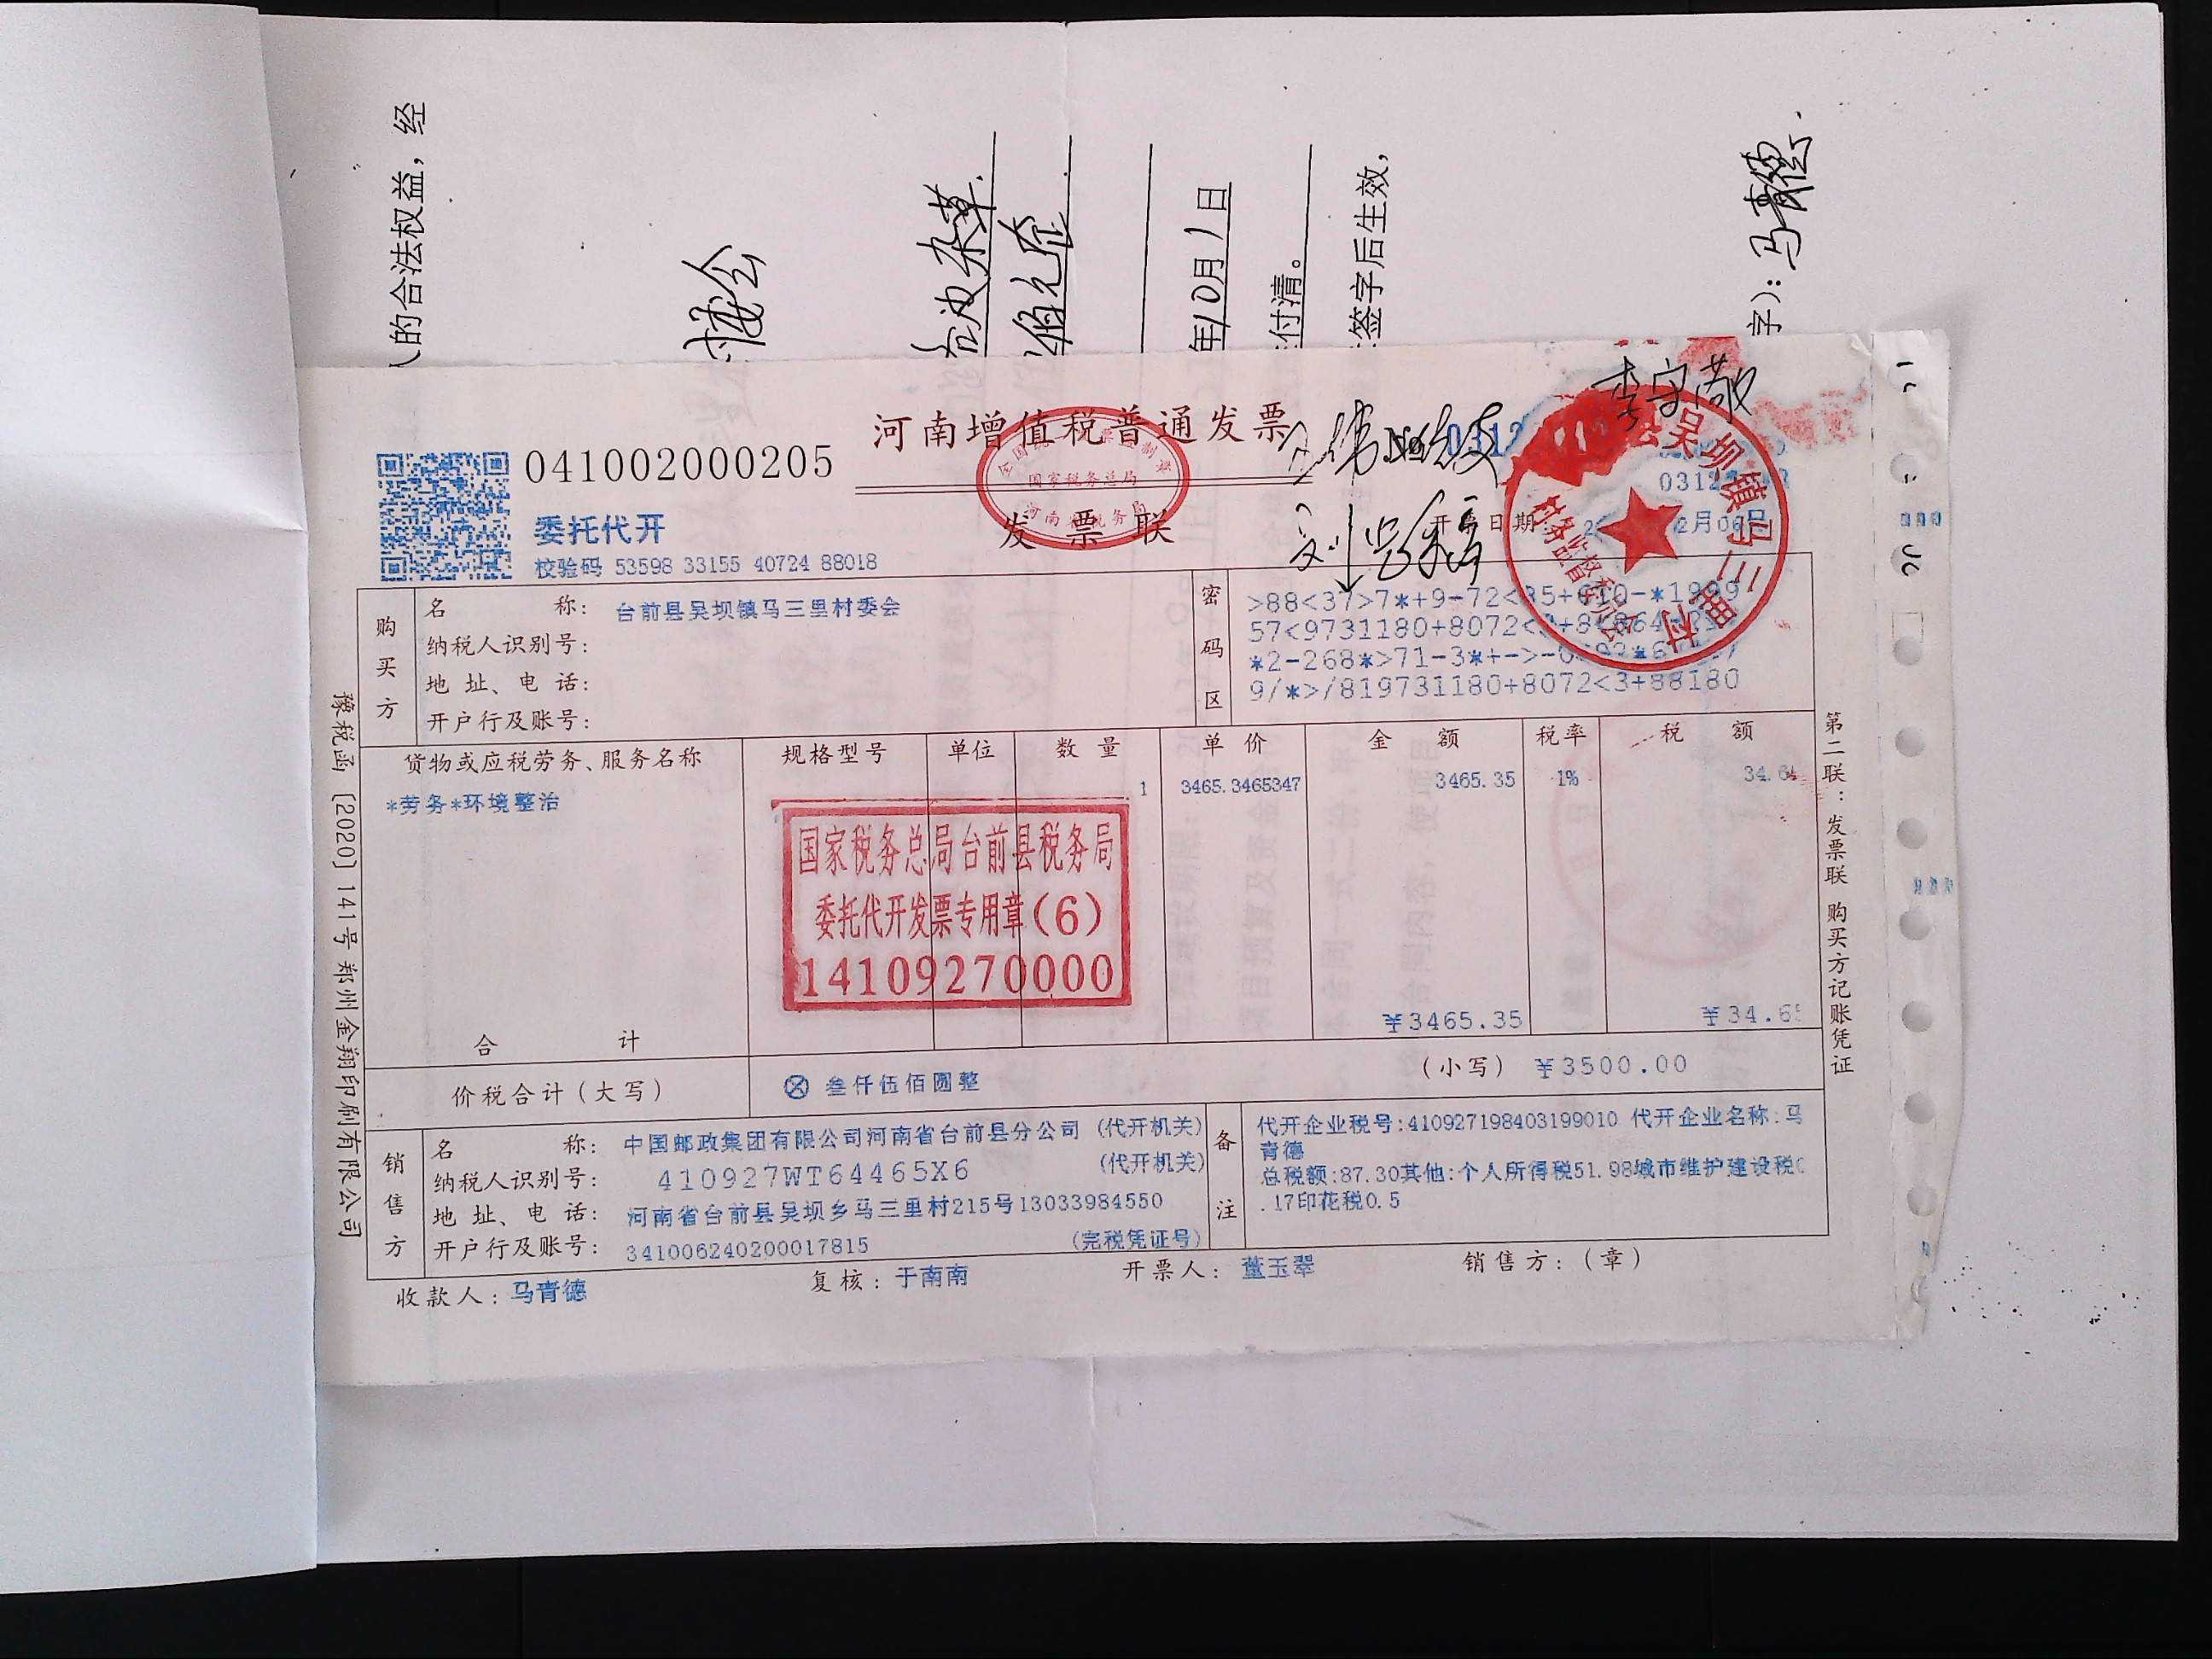 人的合法权益，经
杂草
年10月1日
付清。
签字后生效，
字）：马青德
河南增值税普通发票
041002000205
全国
国家税务总局
河南 税务局
发票联
委托代开
校验码 53598 33155 40724 88018
0312
李守敬
开票日期：
2月06日
吴坝镇马三里村
村务监督委员会
购买方
名称： 台前县吴坝镇马三里村委会
纳税人识别号：
地址、电话：
开户行及账号：
密码区
>88<37>7*+9-72<
57<9731180+8072<
*2-268*>71-3*+->-
9/*>/819731180+8072<3+88180
货物或应税劳务、服务名称 规格型号 单位 数量 单价 金额 税率 税额
*劳务*环境整治 1 3465.3465347 3465.35 1% 34.6
国家税务总局台前县税务局
委托代开发票专用章(6)
14109270000
合计 ￥3465.35 ￥34.65
价税合计（大写） ⊗ 叁仟伍佰圆整 （小写） ￥3500.00
销售方
名称： 中国邮政集团有限公司河南省台前县分公司 (代开机关)
纳税人识别号： 410927WT64465X6 (代开机关)
地址、电话： 河南省台前县吴坝乡马三里村215号13033984550
开户行及账号： 341006240200017815 (完税凭证号)
备注
代开企业税号:410927198403199010 代开企业名称:马
青德
总税额:87.30其他:个人所得税51.98城市维护建设税0
.17印花税0.5
收款人：马青德 复核：于南南 开票人：董玉翠 销售方：（章）
豫税函〔2020〕141号 郑州金翔印刷有限公司
第二联：发票联 购买方记账凭证